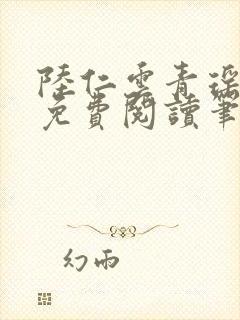 陸仁雲青瑤
免費閱讀筆
幻雨